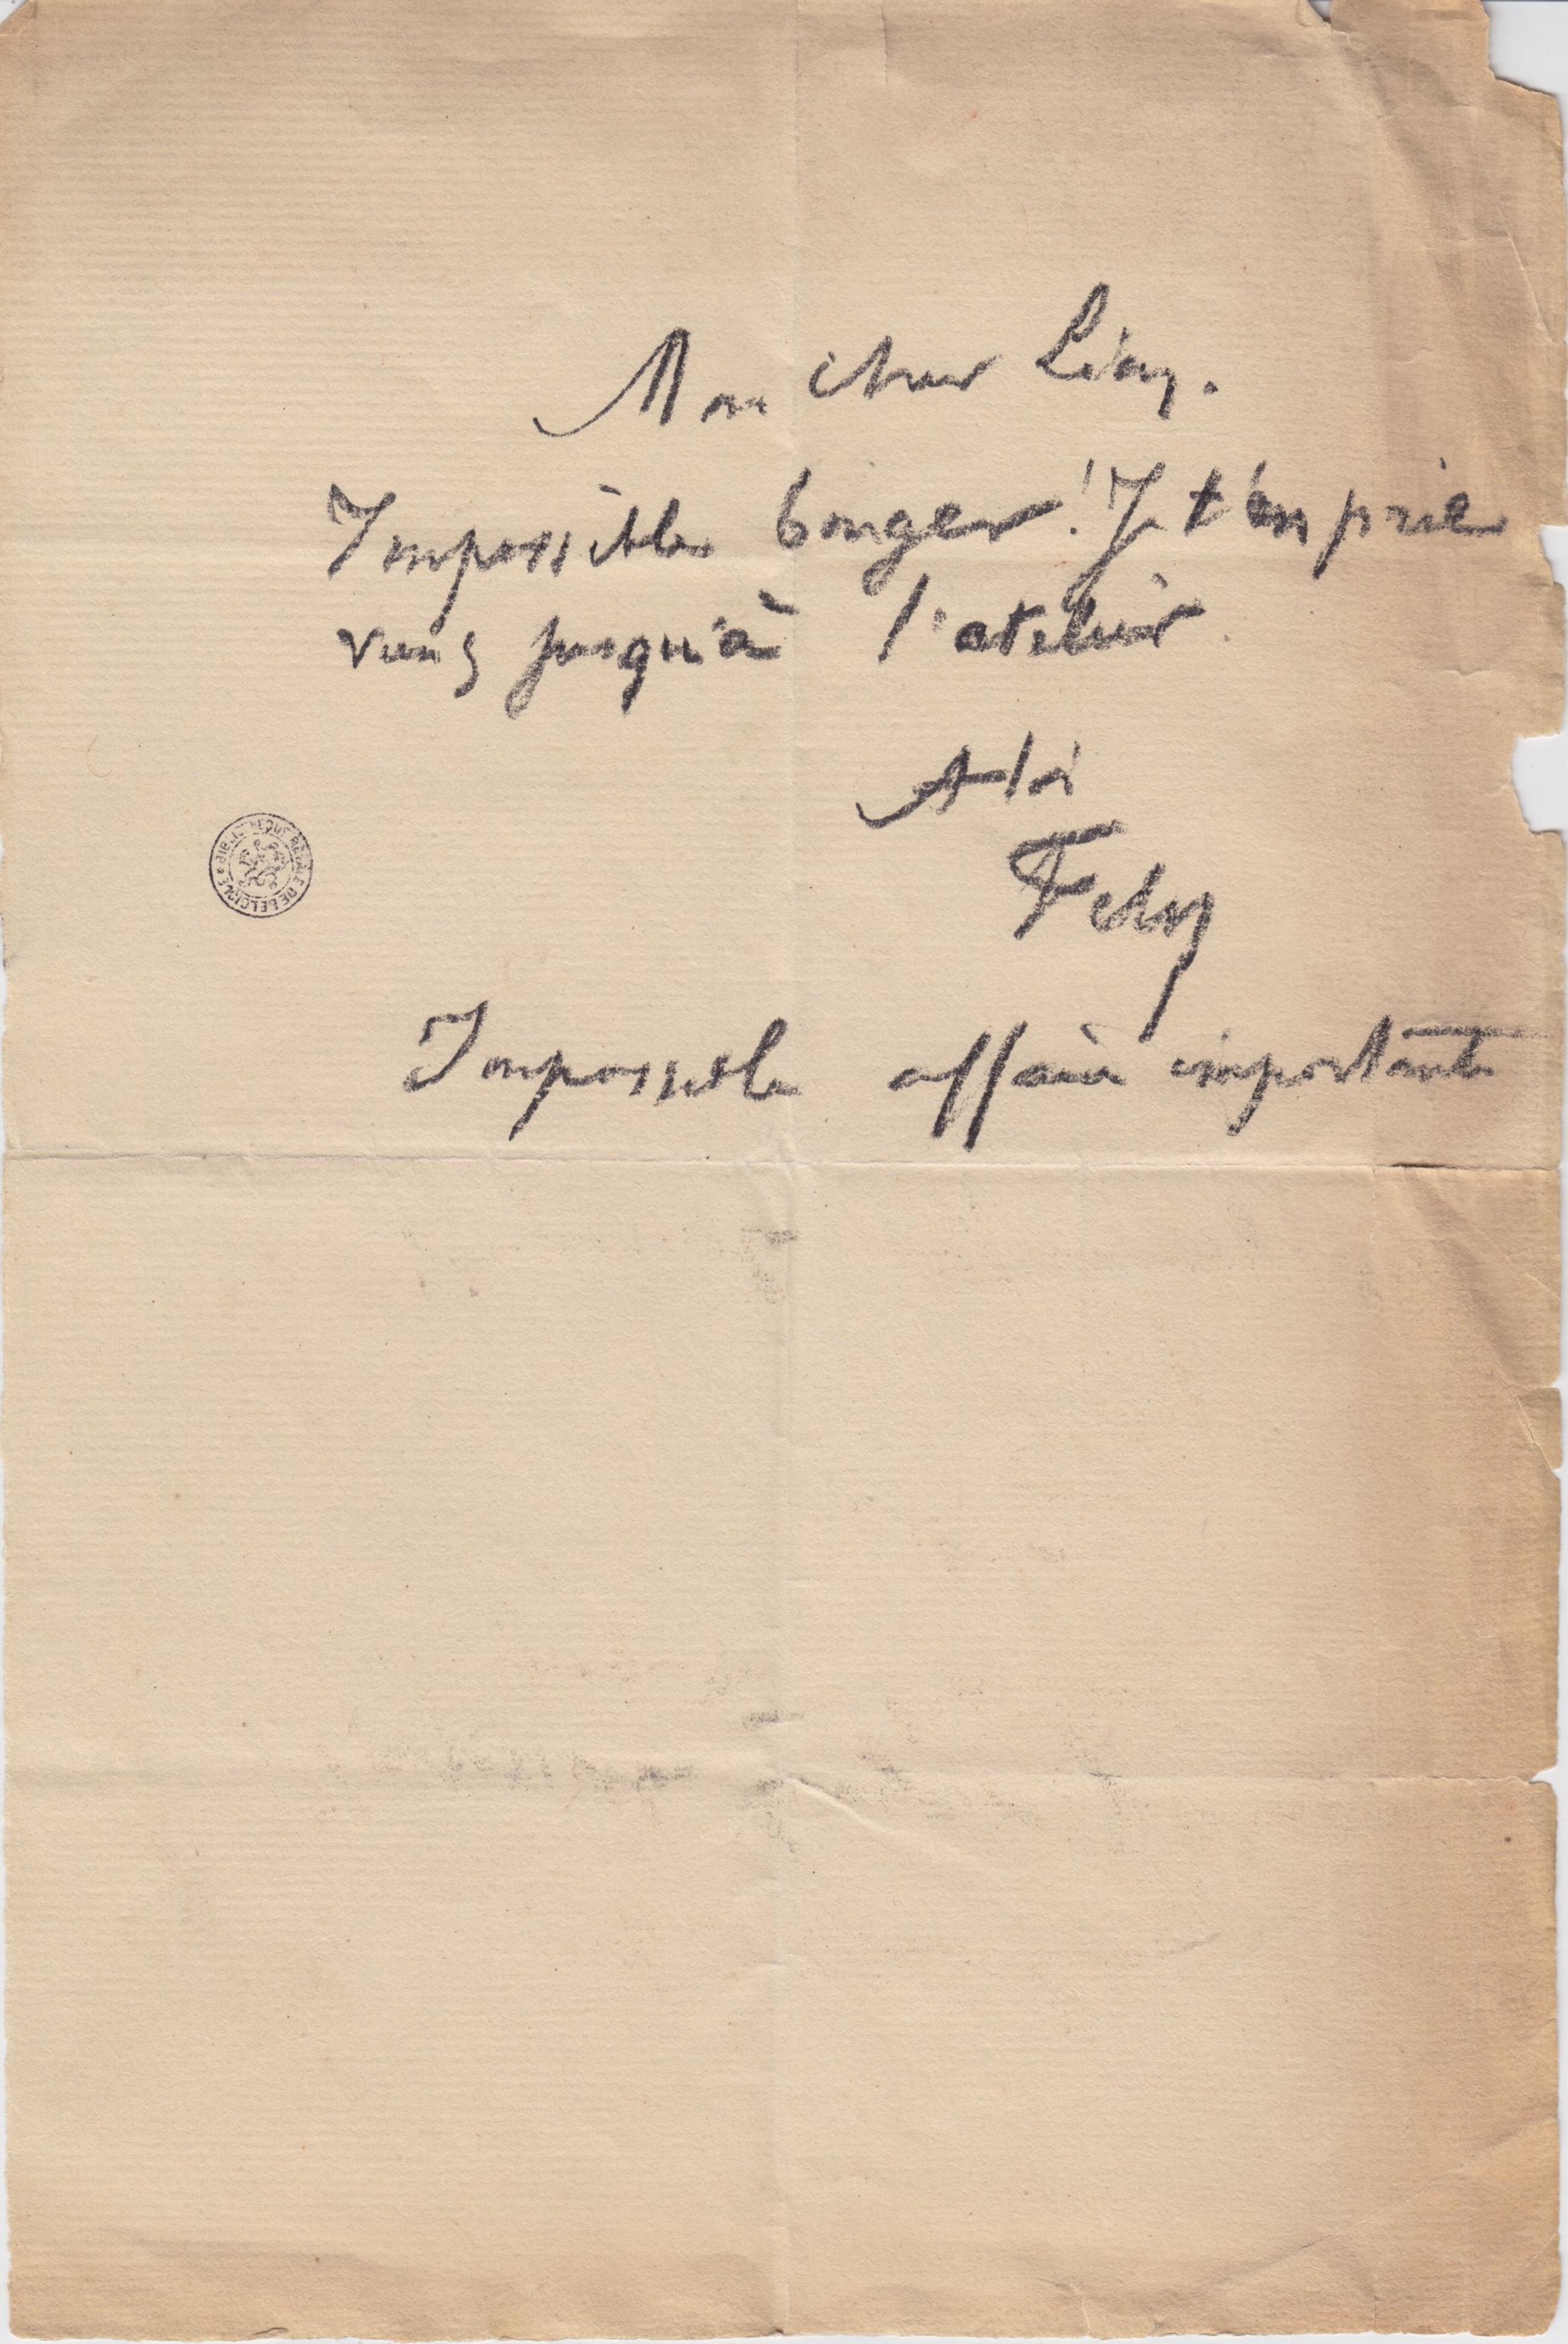 Mon cher Léon.
Impossible bouger! Je t'en prie
viens jusqu'à l'atelier.
A toi
Fély
Impossible affaire importante
BIBLIOTHEQUE ROYALE DE BELGIQUE